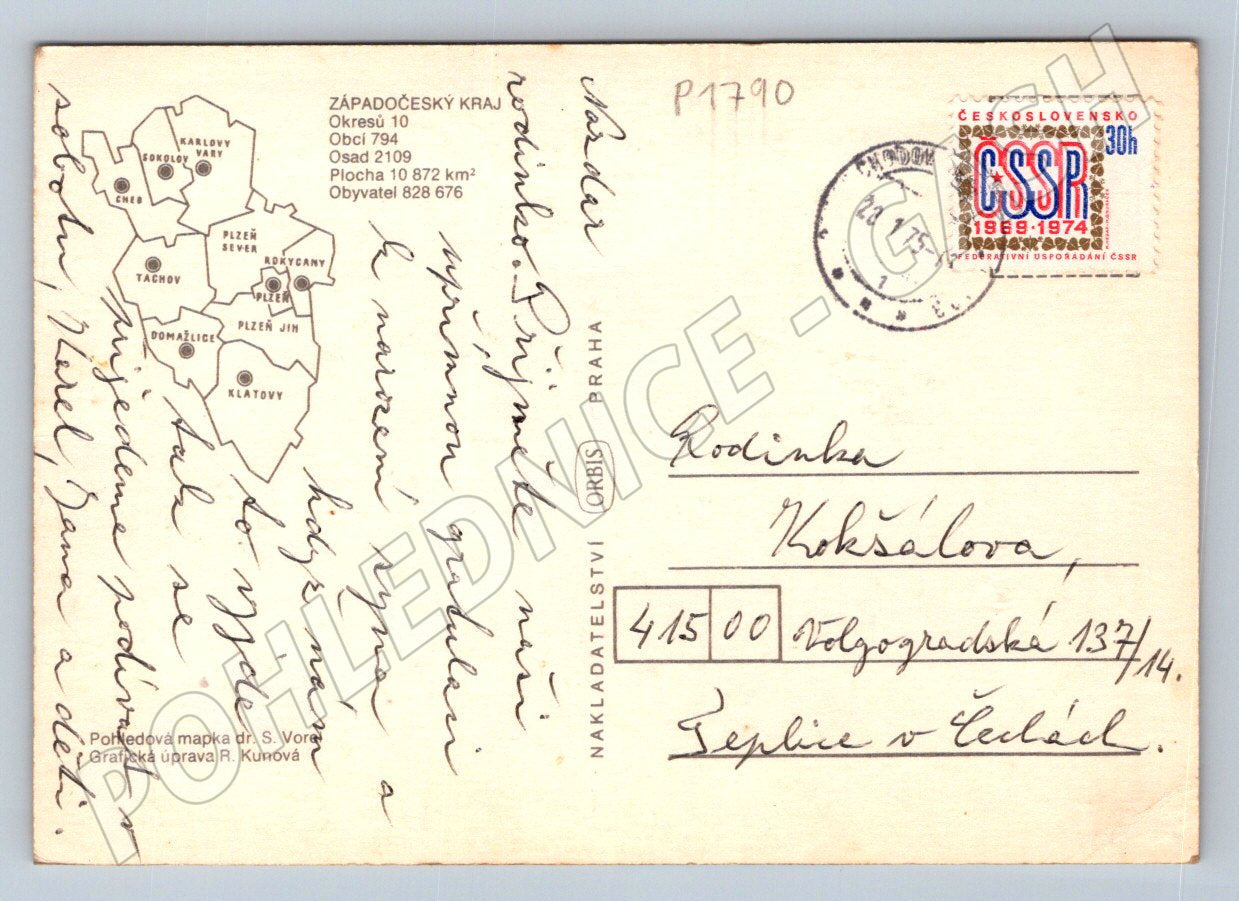 ZÁPADOČESKÝ KRAJ
Okresů 10
Obcí 794
Osad 2109
Plocha 10 872 km²
Obyvatel 828 676
KARLOVY
VARY
SOKOLOV
CHEB
PLZEŇ
SEVER
ROKYCANY
TACHOV
PLZEŇ
PLZEŇ JIH
DOMAŽLICE
KLATOVY
Pohledová mapka dr. S. Vorel
Grafická úprava R. Kunová
Nazdar
rodinko. Přijměte naši
upřímnou gratulaci
k narození syna a
když nám
to vyjde
tak se
přijedeme podívat v
sobotu, Karel, Jana a děti.
NAKLADATELSTVÍ ORBIS PRAHA
P1790
ČESKOSLOVENSKO
30h
ČSSR
1969·1974
FEDERATIVNÍ USPOŘÁDÁNÍ ČSSR
CHODOV
28.1.75
1
Rodinka
Kokšálova,
415 00 Volgogradská 137/14.
Teplice v Čechách.
POHLEDNICE - GACH